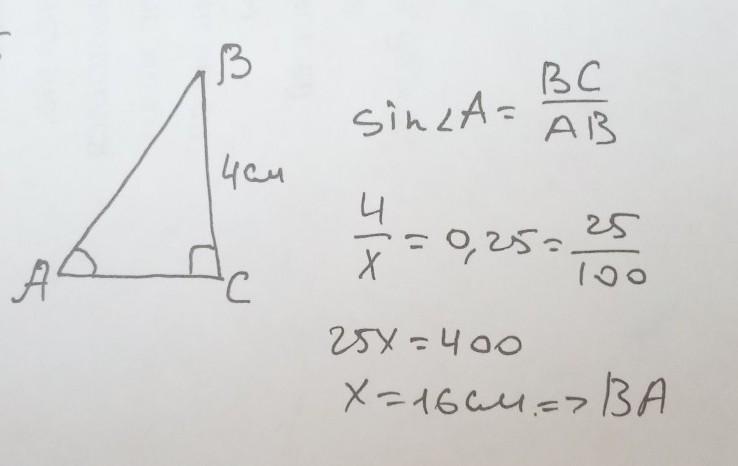 B
4см
A
C
sin∠A = BC/AB
4/x = 0,25 = 25/100
25x = 400
x = 16см. => BA